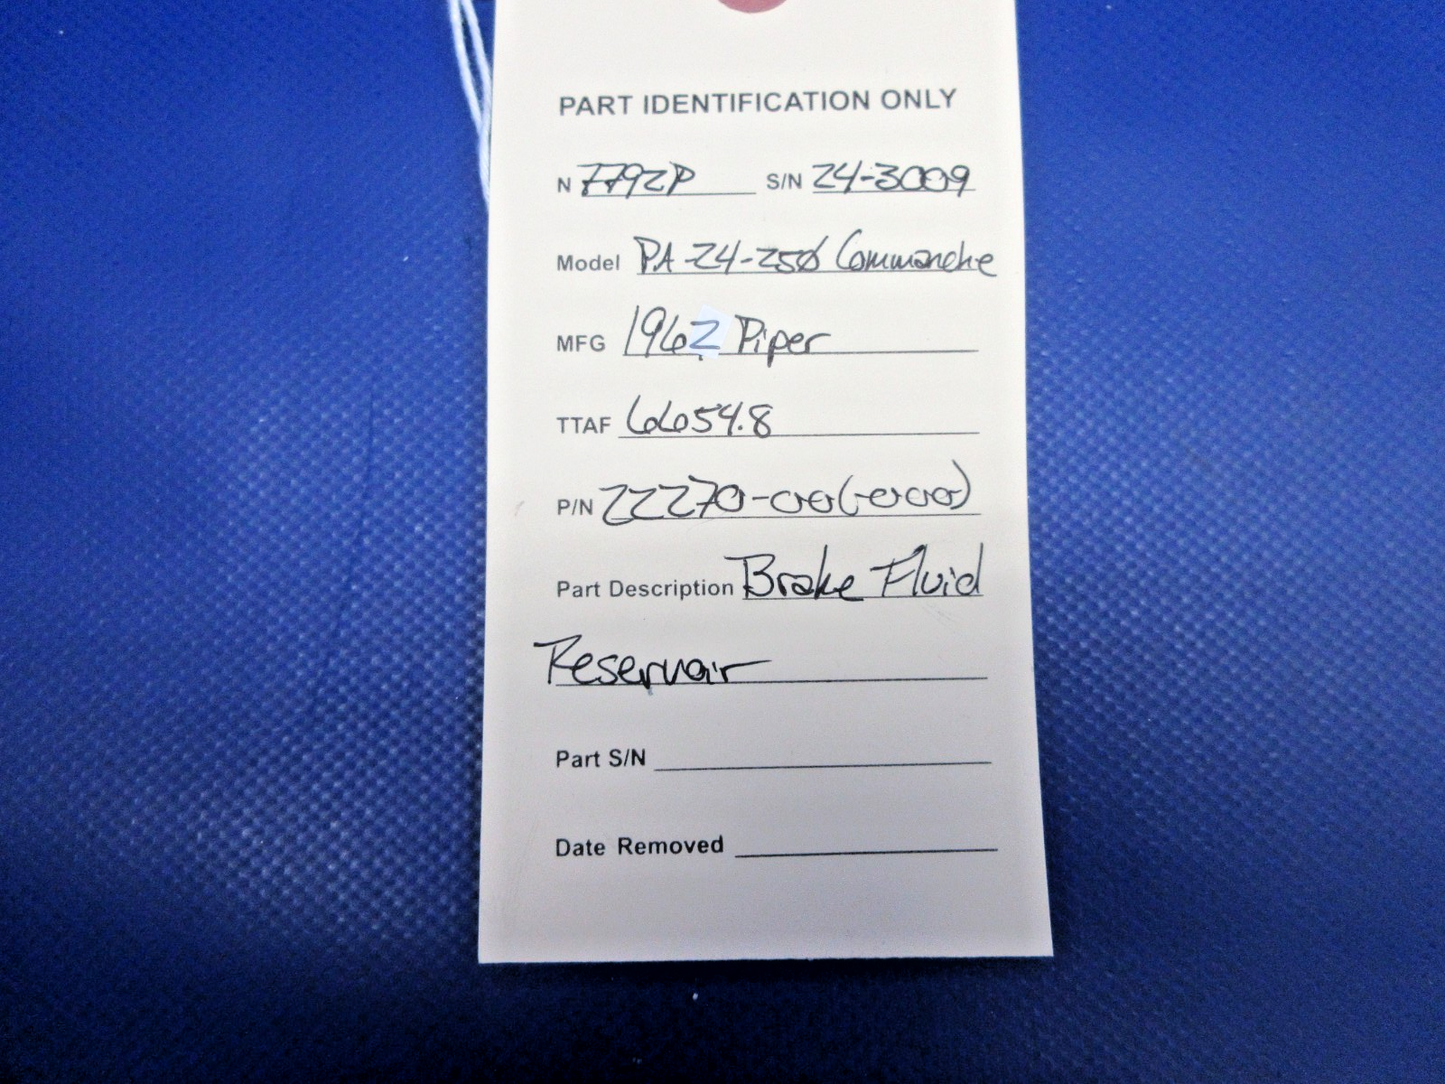 PART IDENTIFICATION ONLY
N 7792P S/N 24-3009
Model PA-24-250 Commanche
MFG 1962 Piper
TTAF 6654.8
P/N 22270-00(-000)
Part Description Brake Fluid
Reservoir
Part S/N
Date Removed